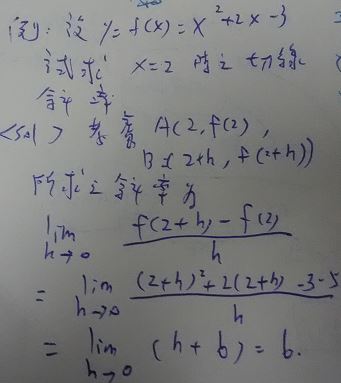 例: 設 y = f(x) = x²+2x-3
試求 x=2 時之切線
斜率
<sol> 考慮 A(2, f(2),
B(2+h, f(2+h))
所求之斜率為
lim h→0 f(2+h) - f(2) / h
= lim h→0 (2+h)²+2(2+h)-3-5 / h
= lim h→0 (h+6) = 6.